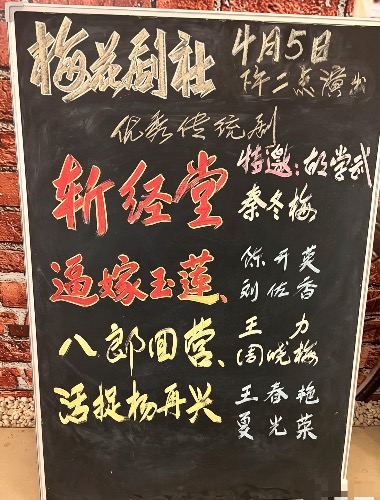 梅花剧社
4月5日
下午二点演出
优秀传统剧
斩经堂
特邀:胡学武
秦冬梅
逼嫁玉莲、
陈开英
刘佐香
八郎回营、
王力
周晓梅
活捉杨再兴
王春艳
夏光荣